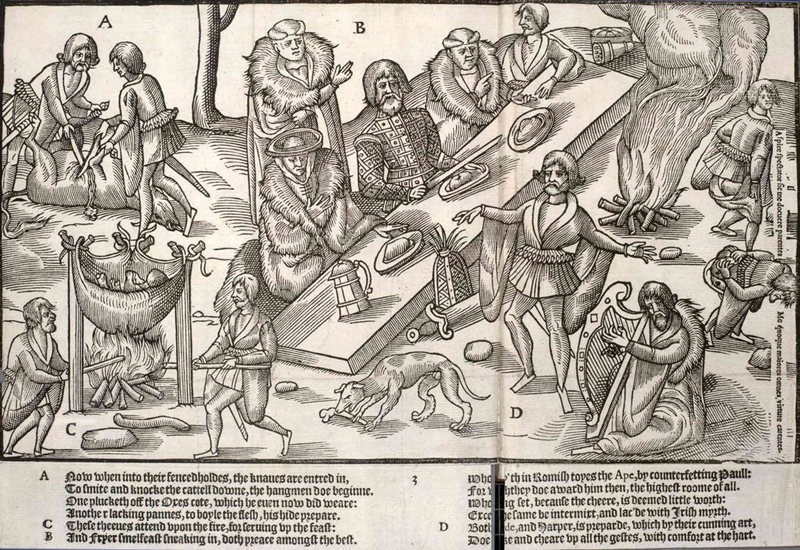 A
B
C
D
Aspice spectator sic me docuere parentes
Me quoque maiores omnes, virtute carentes.
A Now when into their fencedholdes, the knaues are entred in,
To smite and knocke the cattell downe, the hangmen doe beginne.
One plucketh off the Oxes cote, which he euen now did weare:
Another lacking pannes, to boyle the flesh, his hide prepare.
C These theeues attend vpon the fire, for seruing vp the feast:
B And Fryer smelfeast sneaking in, doth preace amongst the best.
3 in Romish toyes the Ape, by counterfetting Paull:
For they doe award him then, the highest roome of all.
set, because the cheere, is deemed little worth:
the same be intermixt, and lac'de with Irish myrth.
D Both and Harper, is preparde, which by their cunning art,
Doe and cheare vp all the gestes, with comfort at the hart.